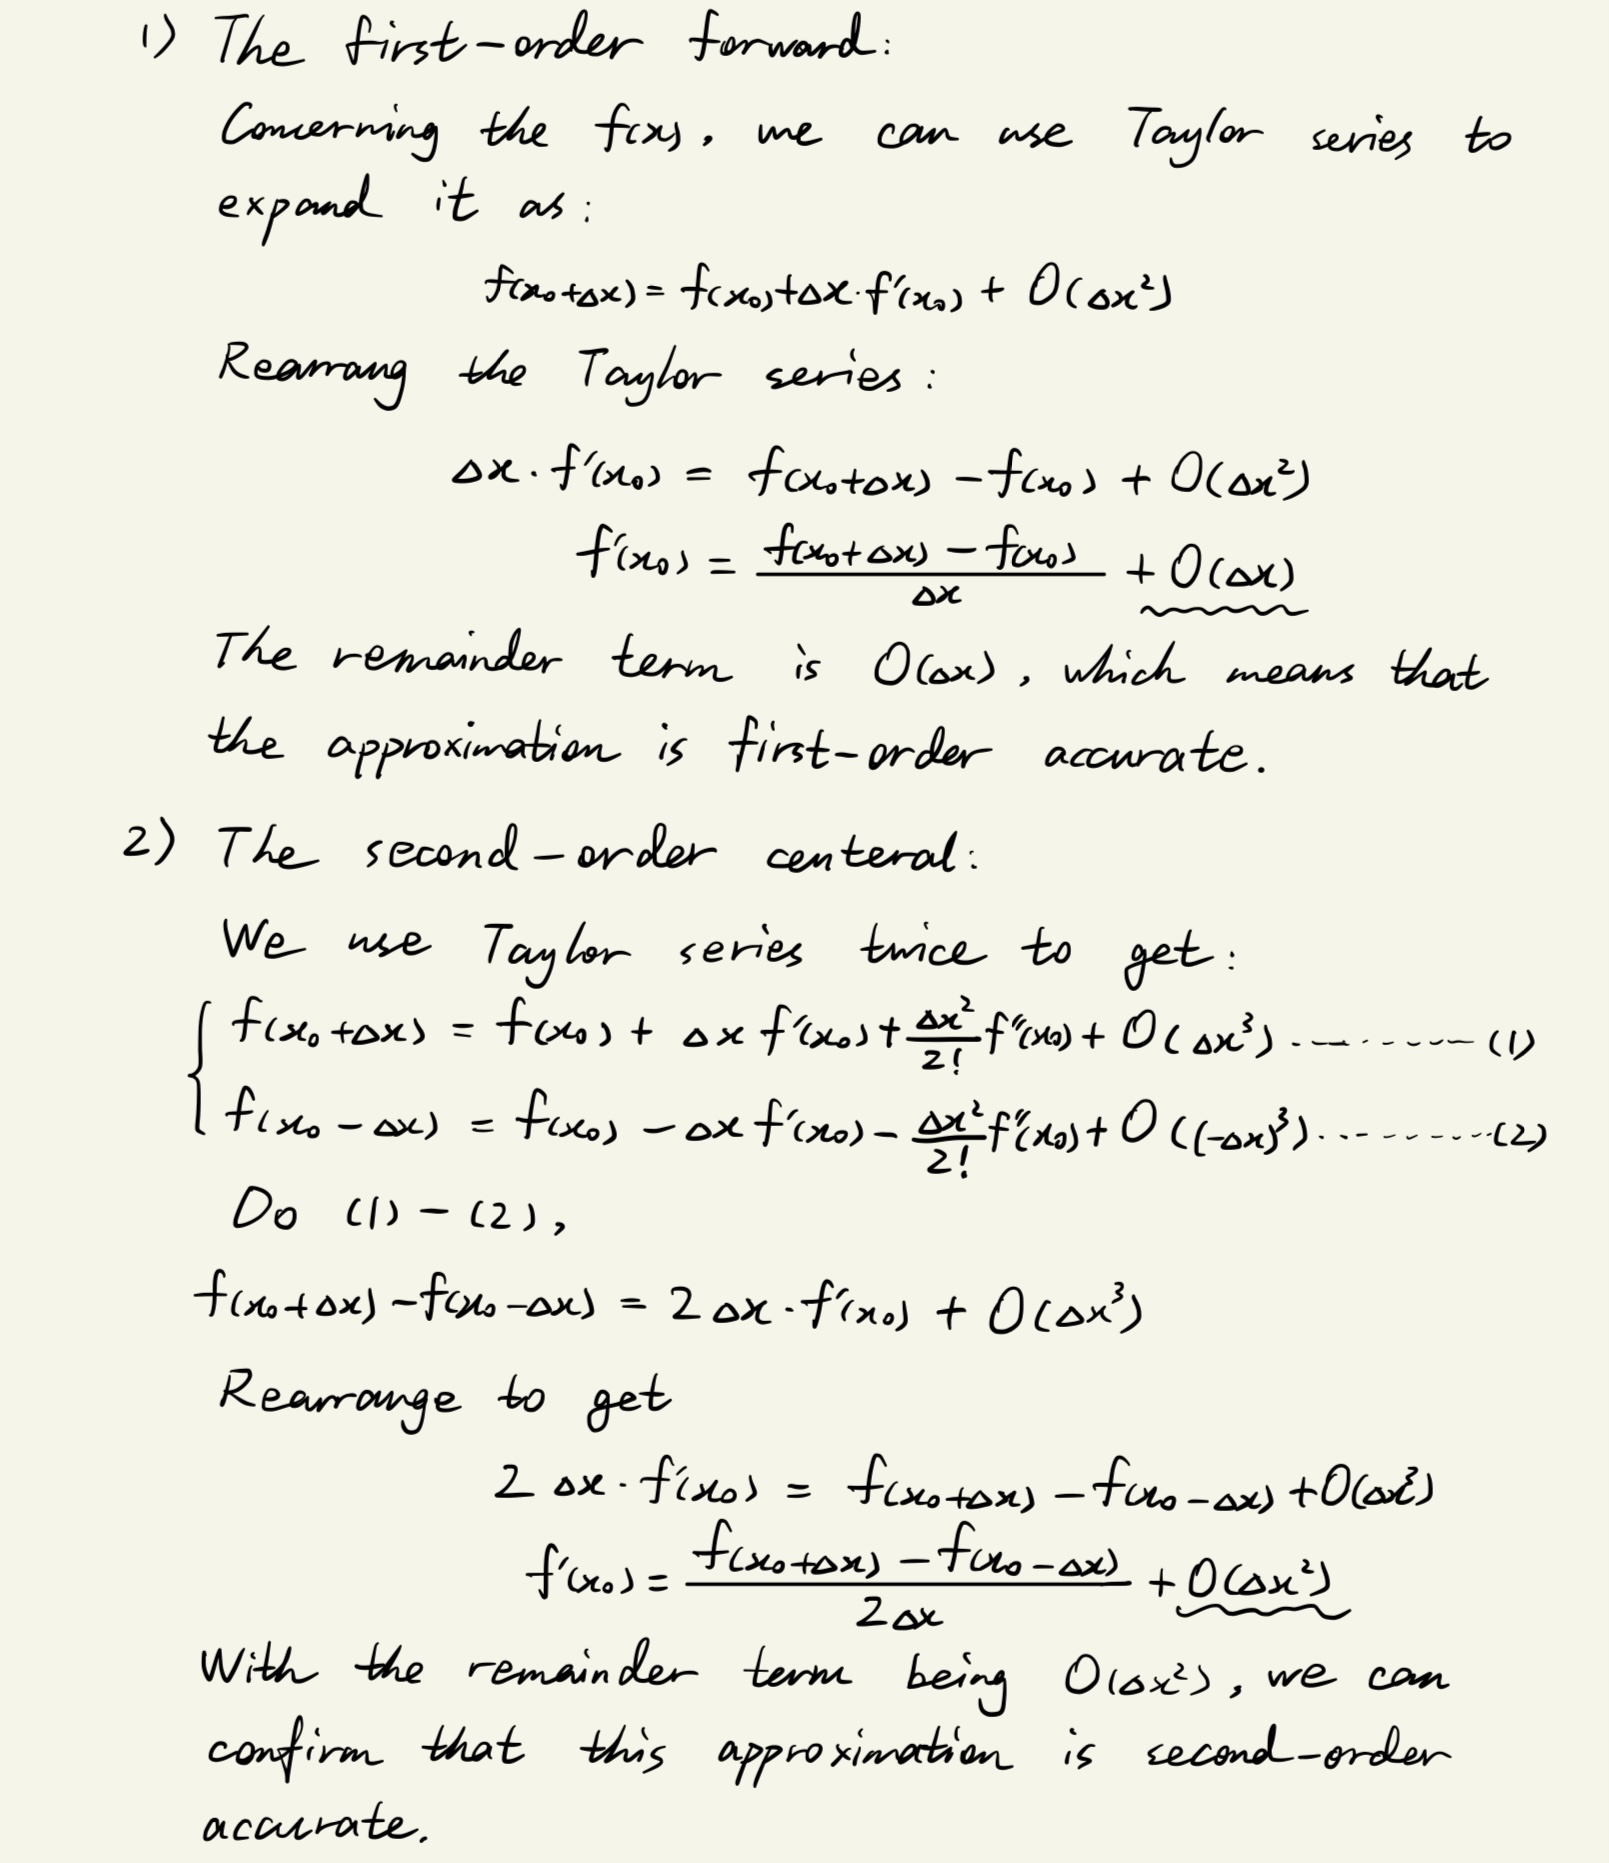 1) The first-order forward:
Concerning the f(x), we can use Taylor series to
expand it as:
f(x₀+Δx) = f(x₀)+Δx·f′(x₀) + O(Δx²)
Rearrang the Taylor series:
Δx·f′(x₀) = f(x₀+Δx) − f(x₀) + O(Δx²)
f′(x₀) = \frac{f(x₀+Δx) − f(x₀)}{Δx} + O(Δx)
The remainder term is O(Δx), which means that
the approximation is first-order accurate.
2) The second-order centeral:
We use Taylor series twice to get:
f(x₀+Δx) = f(x₀) + Δx f′(x₀) + \frac{Δx²}{2!} f″(x₀) + O(Δx³) --------- (1)
f(x₀−Δx) = f(x₀) − Δx f′(x₀) − \frac{Δx²}{2!} f″(x₀) + O((−Δx)³) --------- (2)
Do (1) − (2),
f(x₀+Δx) − f(x₀−Δx) = 2Δx·f′(x₀) + O(Δx³)
Rearrange to get
2Δx·f′(x₀) = f(x₀+Δx) − f(x₀−Δx) + O(Δx³)
f′(x₀) = \frac{f(x₀+Δx) − f(x₀−Δx)}{2Δx} + O(Δx²)
With the remainder term being O(Δx²), we can
confirm that this approximation is second-order
accurate.